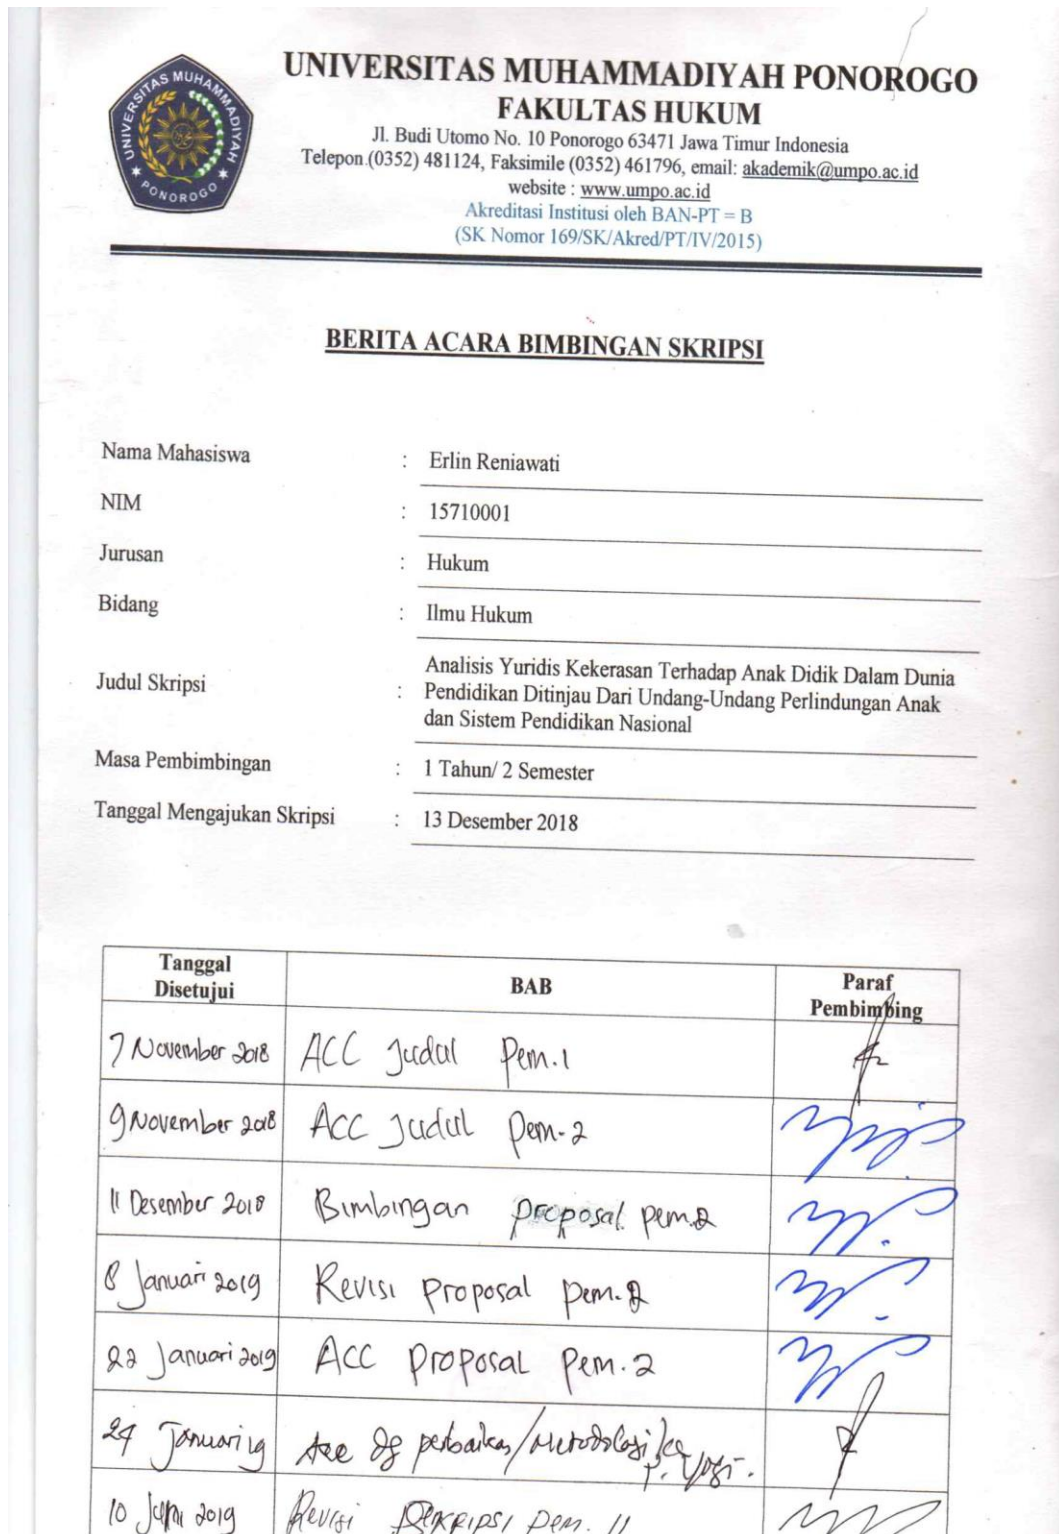 UNIVERSITAS MUHAMMADIYAH
PONOROGO
UNIVERSITAS MUHAMMADIYAH PONOROGO
FAKULTAS HUKUM
Jl. Budi Utomo No. 10 Ponorogo 63471 Jawa Timur Indonesia
Telepon.(0352) 481124, Faksimile (0352) 461796, email: akademik@umpo.ac.id
website : www.umpo.ac.id
Akreditasi Institusi oleh BAN-PT = B
(SK Nomor 169/SK/Akred/PT/IV/2015)
BERITA ACARA BIMBINGAN SKRIPSI
Nama Mahasiswa : Erlin Reniawati
NIM : 15710001
Jurusan : Hukum
Bidang : Ilmu Hukum
Judul Skripsi : Analisis Yuridis Kekerasan Terhadap Anak Didik Dalam Dunia
Pendidikan Ditinjau Dari Undang-Undang Perlindungan Anak
dan Sistem Pendidikan Nasional
Masa Pembimbingan : 1 Tahun/ 2 Semester
Tanggal Mengajukan Skripsi : 13 Desember 2018
Tanggal Disetujui BAB Paraf Pembimbing
7 November 2018 ACC Judul Pem.1
9 November 2018 ACC Judul Pem-2
11 Desember 2018 Bimbingan proposal pem.2
8 Januari 2019 Revisi proposal pem.2
22 Januari 2019 ACC proposal Pem.2
24 Januari 19 Acc dg perbaikan/Metodologi
10 2019 Revisi pem. II